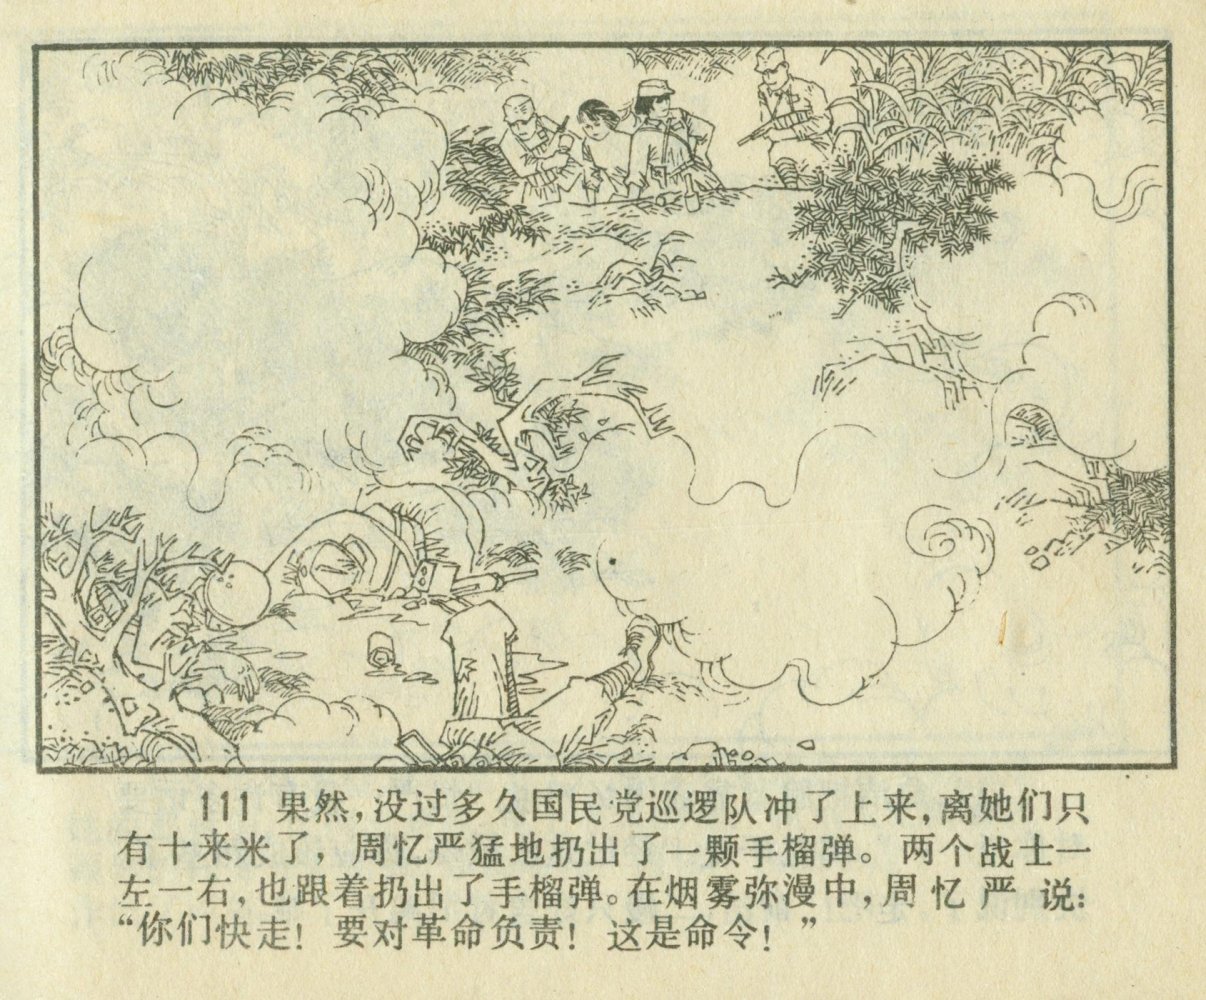 111 果然，没过多久国民党巡逻队冲了上来，离她们只
有十来米了，周忆严猛地扔出了一颗手榴弹。两个战士一
左一右，也跟着扔出了手榴弹。在烟雾弥漫中，周忆严说：
“你们快走！要对革命负责！这是命令！”